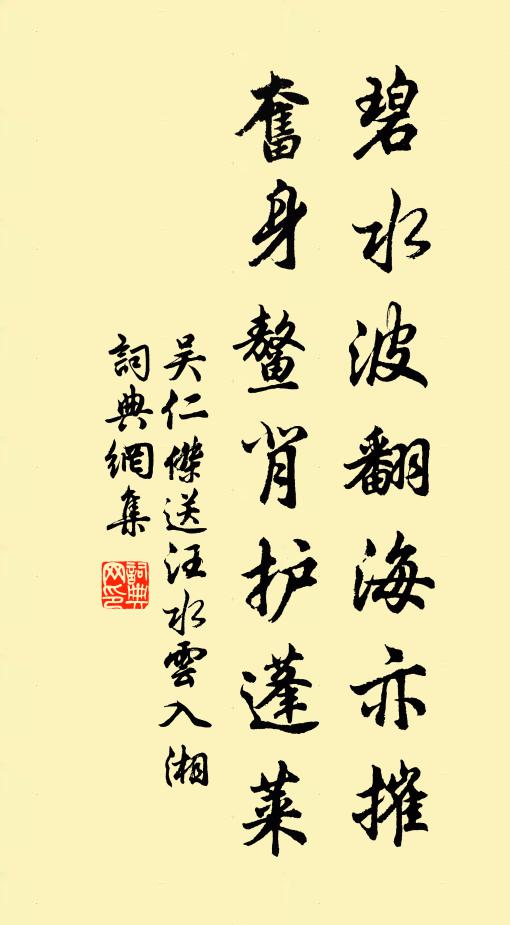 碧水波翻海亦摧
奮身鳌背护蓬莱
吴仁傑送汪水雲入湘
詞典網集
詞典网印